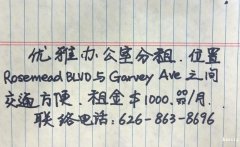 优雅办公室分租.位置
Rosemead BLVD与Garvey Ave之间
交通方便.租金$1000.00/月.
联络电话:626-863-8696